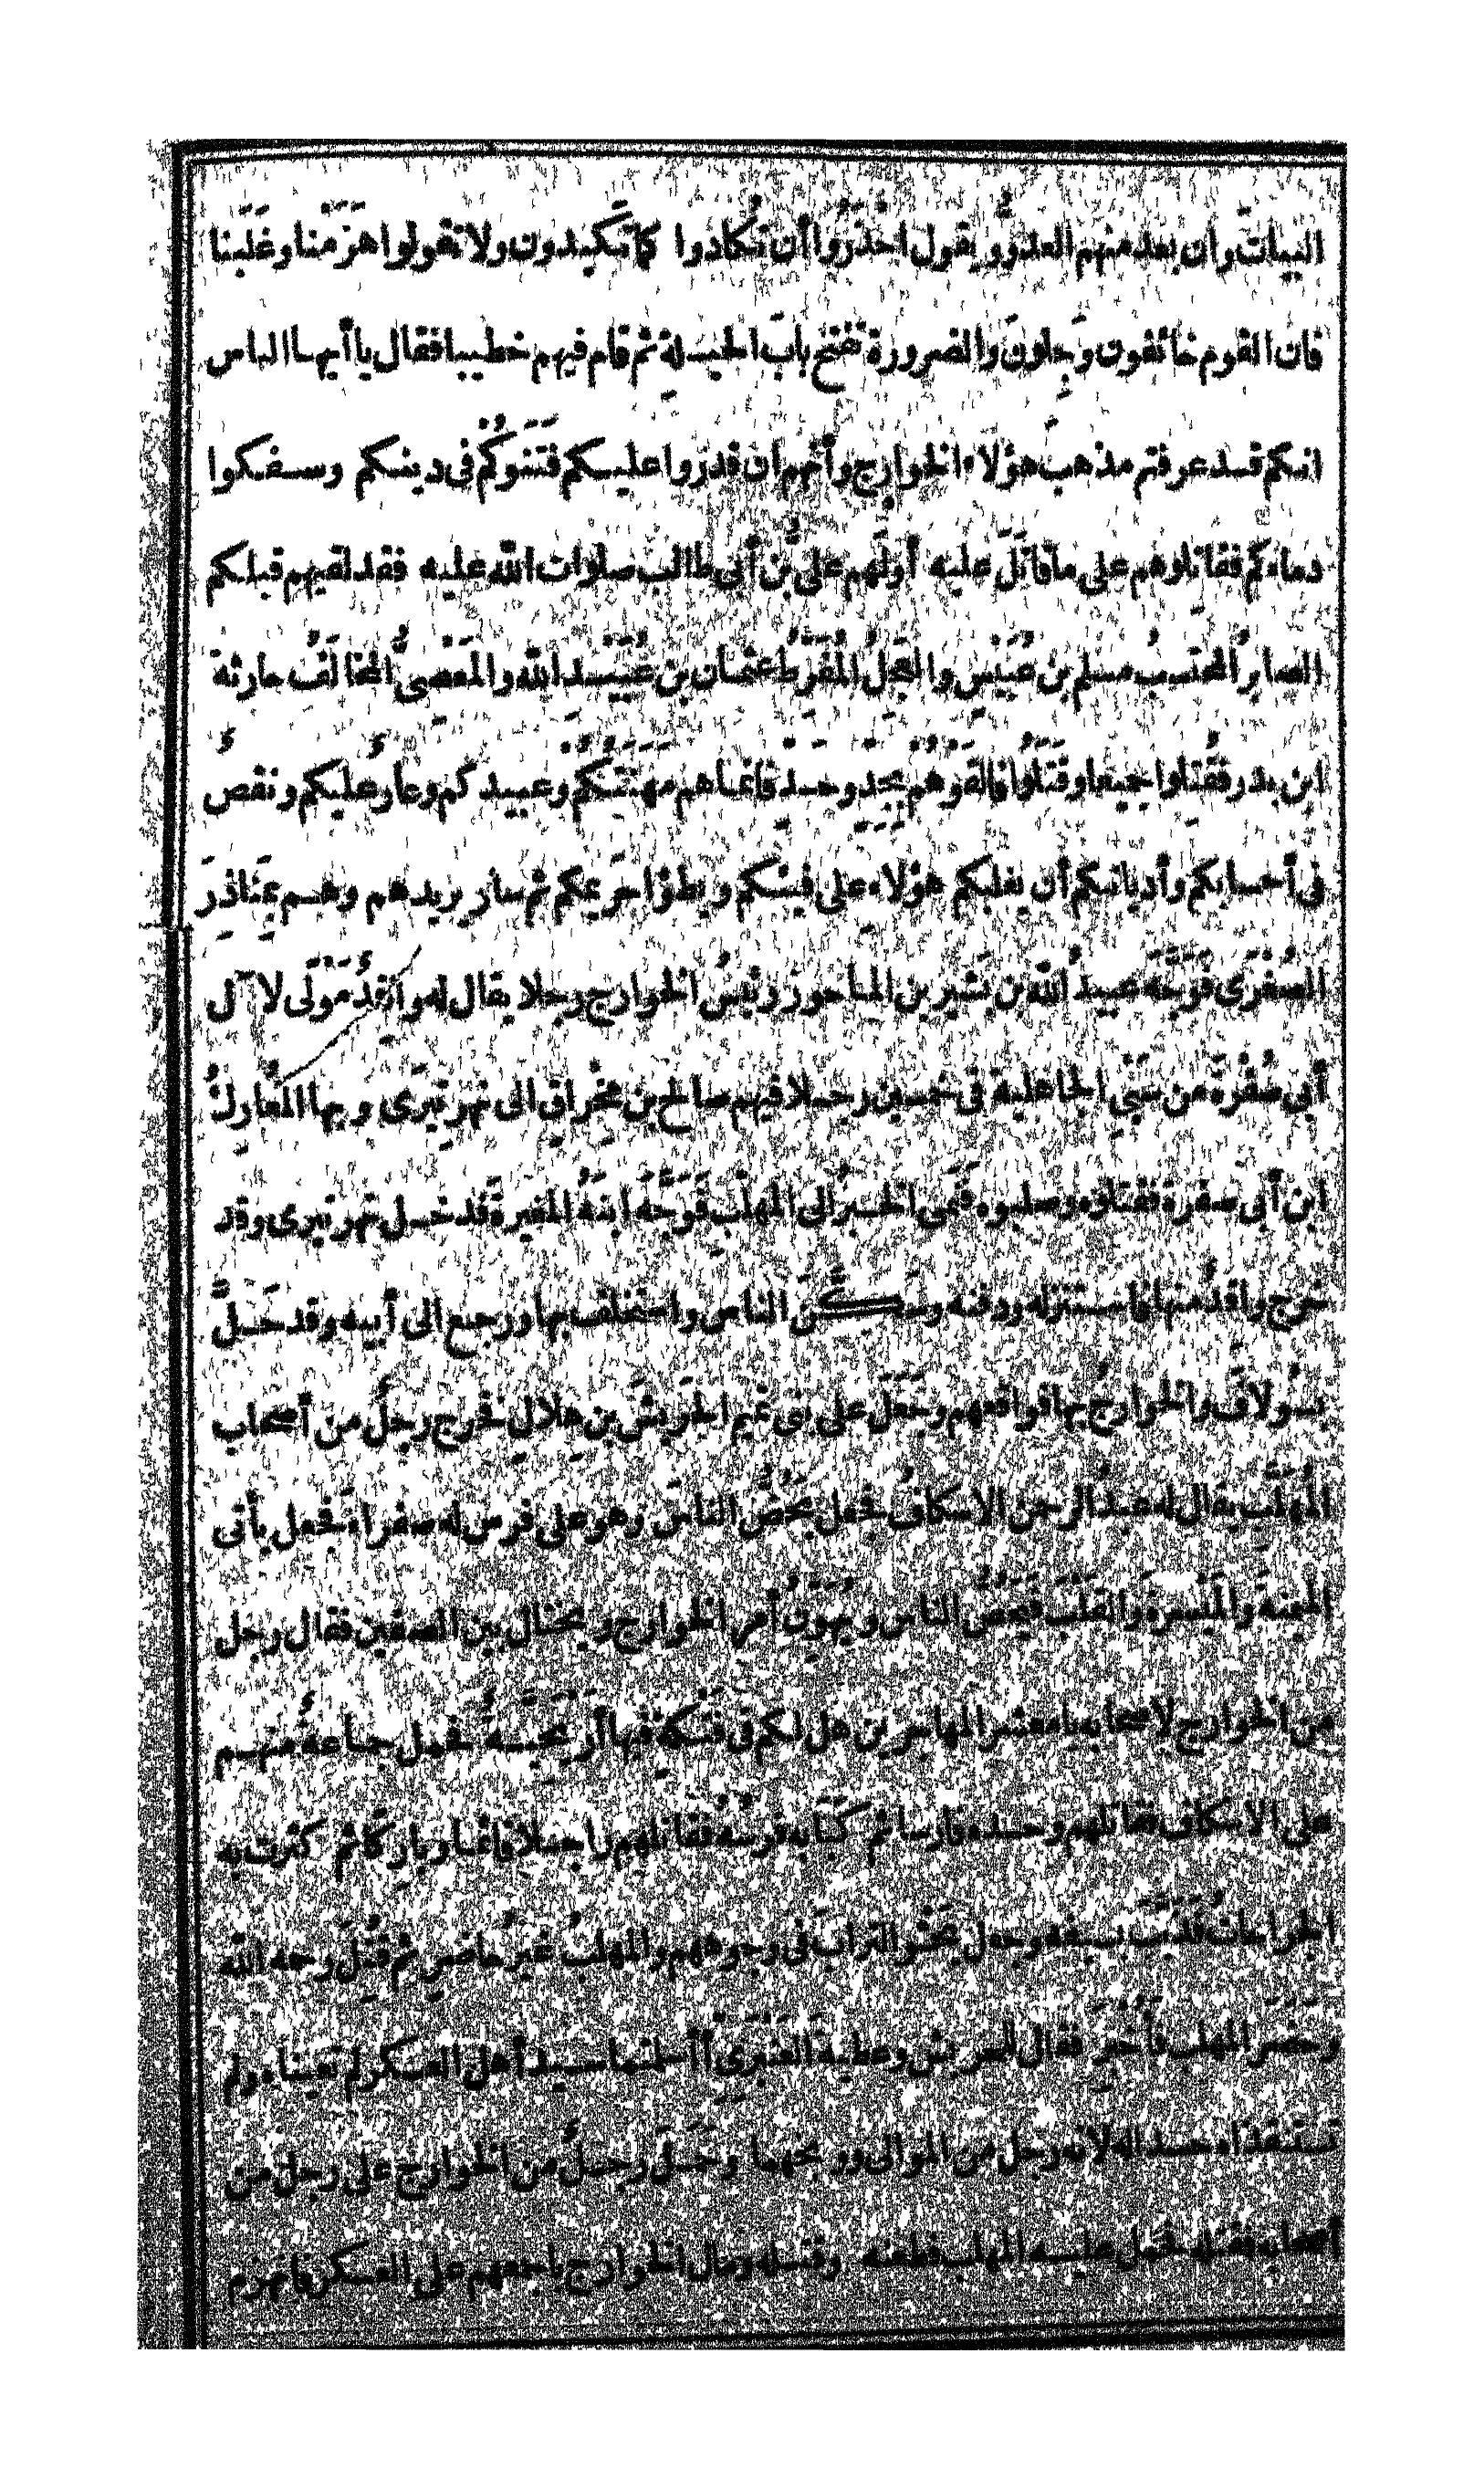 البيات وأن بعد منهم العدو ويقول احذروا أن تكادوا كما تكيدون ولا تقولوا هزمنا وغلبنا
فان القوم خائفون وجلون والضرورة تفتح باب الحيلة ثم قام فيهم خطيبا فقال يا أيها الناس
انكم قد عرفتم مذهب هؤلاء الخوارج وأنهم ان قدروا عليكم فتنوكم في دينكم وسفكوا
دماءكم فقاتلوهم على ما قاتل عليه أولهم علي بن أبي طالب صلوات الله عليه فقد لقيهم قبلكم
الصابر المحتسب مسلم بن عبيس والعجل المفرط عثمان بن عبيد الله والمعصي المخالف حارثة
ابن بدر فقتلوا جميعا وقتلوا فالقوهم بجد وحد فانما هم مهنتكم وعبيدكم وعار عليكم ونقص
في أحسابكم وأديانكم أن يغلبكم هؤلاء على فيئكم ويطؤا حريمكم ثم سار يريدهم وهم بمناذر
الصغرى فوجه عبيد الله بن بشير بن الماحوز رئيس الخوارج رجلا يقال له واقد مولى لآل
أبي صفرة من سبي الجاهلية في خمسين رجلا فيهم صالح بن مخراق الى نهر تيرى وبها المعارك
ابن أبي صفرة فقتلوه وصلبوه فنمى الخبر الى المهلب فوجه ابنه المغيرة فدخل نهر تيرى وقد
خرج واقد منها فاستنزله ودفنه وسكن الناس واستخلف بها ورجع الى أبيه وقد حل
بسولاف والخوارج بها فواقعهم وجعل على بني تميم الحريش بن هلال فخرج رجل من أصحاب
المهلب يقال له عبد الرحمن الاسكاف فجعل يحض الناس وهو على فرس له صفراء فجعل يأتي
الميمنة والميسرة والقلب فيحض الناس ويهون أمر الخوارج ويختال بين الصفين فقال رجل
من الخوارج لاصحابه يا معشر المهاجرين هل لكم في فتكة فيها أريحية فحمل جماعة منهم
على الاسكاف فقاتلهم وحده فارسا ثم كبا به فرسه فقاتلهم راجلا قائما وباركا ثم كثرت به
الجراحات فذبب بسيفه وجعل يحثو التراب في وجوههم والمهلب غير حاضر ثم قتل رحمه الله
وحضر المهلب فأخبر فقال للحريش وعطية العنبري أأسلمتما سيد أهل العسكر لم تعيناه ولم
تستنقذاه حسدا له لانه رجل من الموالي ووبخهما وحمل رجل من الخوارج على رجل من
أصحابه فقتله فحمل عليه المهلب فطعنه وقتله ومال الخوارج بأجمعهم على العسكر فانهزم